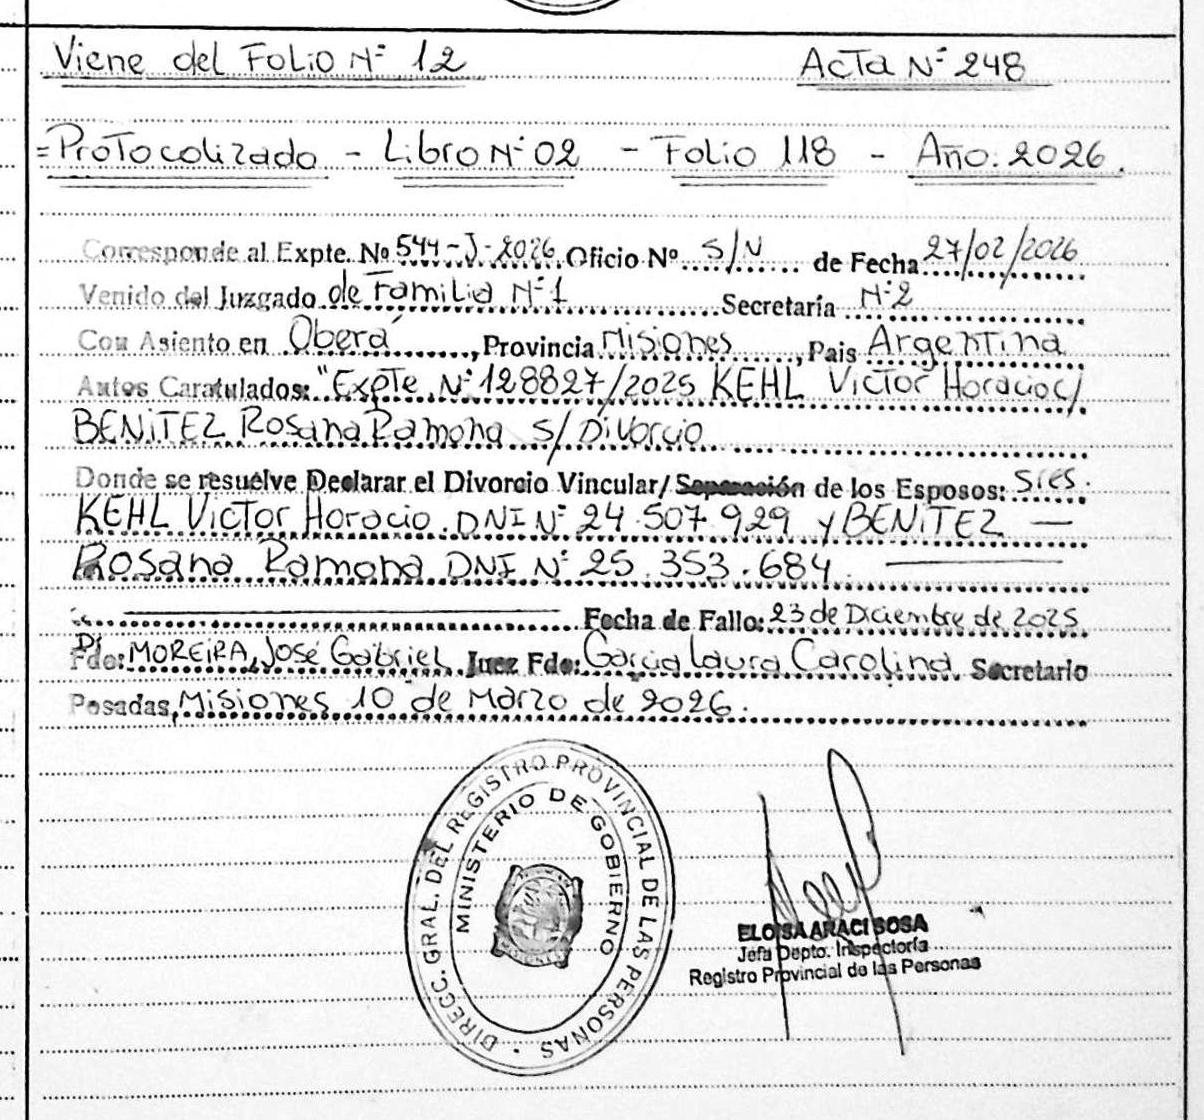 Viene del Folio Nº 12 Acta Nº 248
= Protocolizado - Libro Nº 02 - Folio 118 - Año: 2026.
Corresponde al Expte. Nº 544-J-2026 Oficio Nº S/N de Fecha 27/02/2026
Venido del Juzgado de Familia Nº 1 Secretaría Nº 2
Con Asiento en Oberá, Provincia Misiones, Pais Argentina
Autos Caratulados: "Expte Nº 128827/2025 KEHL Victor Horacio c/
BENITEZ Rosana Ramona s/ Divorcio
Donde se resuelve Declarar el Divorcio Vincular/Separación de los Esposos: Sres.
KEHL Victor Horacio DNI Nº 24.507.929 y BENITEZ —
Rosana Ramona DNI Nº 25.353.684. —
Fecha de Fallo: 23 de Diciembre de 2025
Fdo: MOREIRA, José Gabriel Juez Fdo: Garcia Laura Carolina Secretario
Posadas, Misiones 10 de Marzo de 2026.
DIRECC. GRAL. DEL REGISTRO PROVINCIAL DE LAS PERSONAS
MINISTERIO DE GOBIERNO
ELOISA ARACI SOSA
Jefa Depto. Inspectoría
Registro Provincial de las Personas